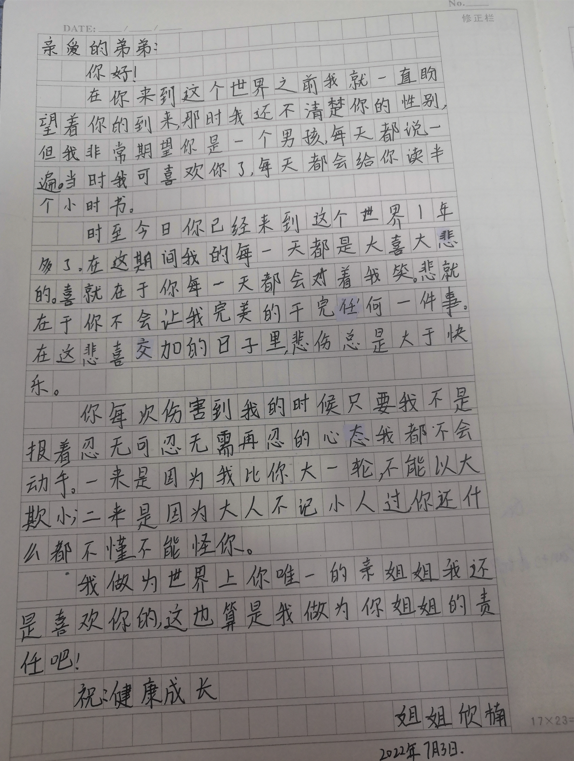 No.
DATE: / /
修正栏
亲爱的弟弟:
你好!
在你来到这个世界之前我就一直盼
望着你的到来,那时我还不清楚你的性别,
但我非常期望你是一个男孩,每天都说一
遍。当时我可喜欢你了,每天都会给你读半
个小时书。
时至今日你已经来到这个世界1年
多了.在这期间我的每一天都是大喜大悲
的。喜就在于你每一天都会对着我笑。悲就
在于你不会让我完美的干完任何一件事。
在这悲喜交加的日子里,悲伤总是大于快
乐。
你每次伤害到我的时候只要我不是
报着忍无可忍无需再忍的心态我都不会
动手。一来是因为我比你大一轮,不能以大
欺小;二来是因为大人不记小人过,你还什
么都不懂不能怪你。
我做为世界上你唯一的亲姐姐我还
是喜欢你的,这也算是我做为你姐姐的责
任吧!
祝:健康成长
姐姐欣楠
17×23=
2022年7月3日.